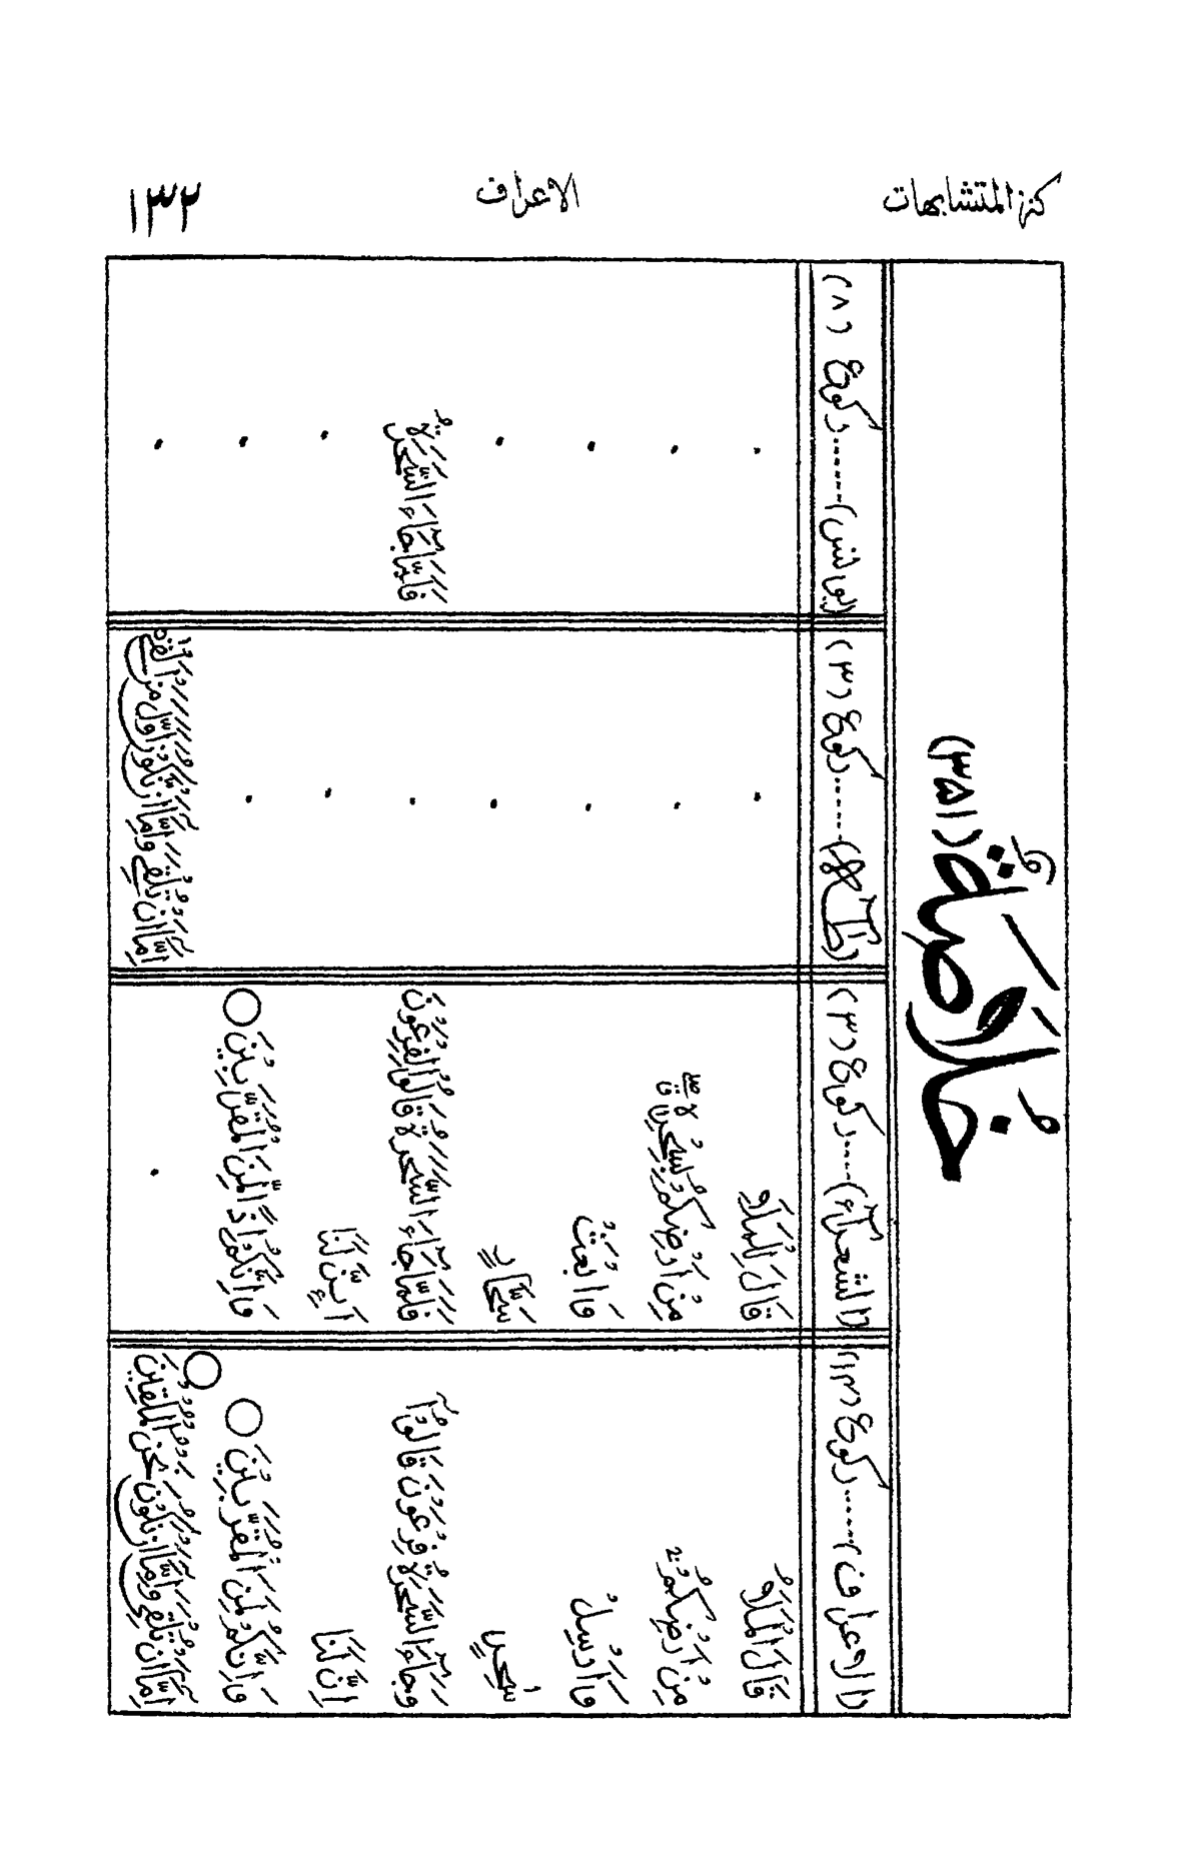 كنز المتشابهات
الاعراف
١٣٢
خُلَاصَةٌ (٣٥١)
(الاعراف)......ركوع (١٣)
(الشعرآء)....ركوع (٣)
(طٰهٰ)......ركوع (٣)
(يونس)......ركوع (٨)
قَالَ الْمَلَاُ
قَالَ لِلْمَلَاِ
مِنْ اَرْضِكُمْ
مِنْ اَرْضِكُمْ بِسِحْرِهٖ
وَاَرْسِلْ
وَابْعَثْ
سٰحِرٍ
سَحَّارٍ
وَجَآءَ السَّحَرَةُ فِرْعَوْنَ قَالُوْٓا
فَلَمَّا جَآءَ السَّحَرَةُ قَالُوْا لِفِرْعَوْنَ
فَلَمَّا جَآءَ السَّحَرَةُ
اِنَّ لَنَا
اَئِنَّ لَنَا
وَاِنَّكُمْ لَمِنَ الْمُقَرَّبِيْنَ
وَاِنَّكُمْ اِذًا لَّمِنَ الْمُقَرَّبِيْنَ
اِمَّآ اَنْ تُلْقِيَ وَاِمَّآ اَنْ نَّكُوْنَ نَحْنُ الْمُلْقِيْنَ
اِمَّآ اَنْ تُلْقِيَ وَاِمَّآ اَنْ نَّكُوْنَ اَوَّلَ مَنْ اَلْقٰى